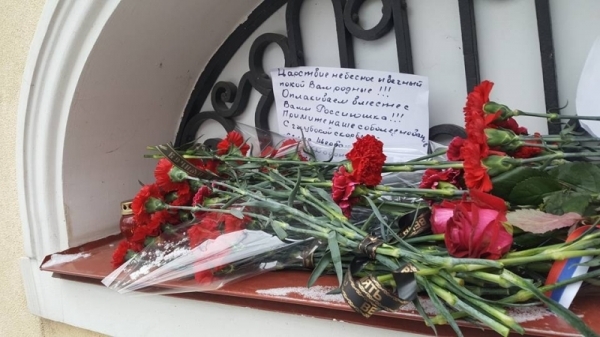 Царствие небесное и вечный
покой Вам родные !!!
Оплакиваем вместе с
Вами Россиюшка!!!
Примите наше соболезнование
С глубокой скорбью